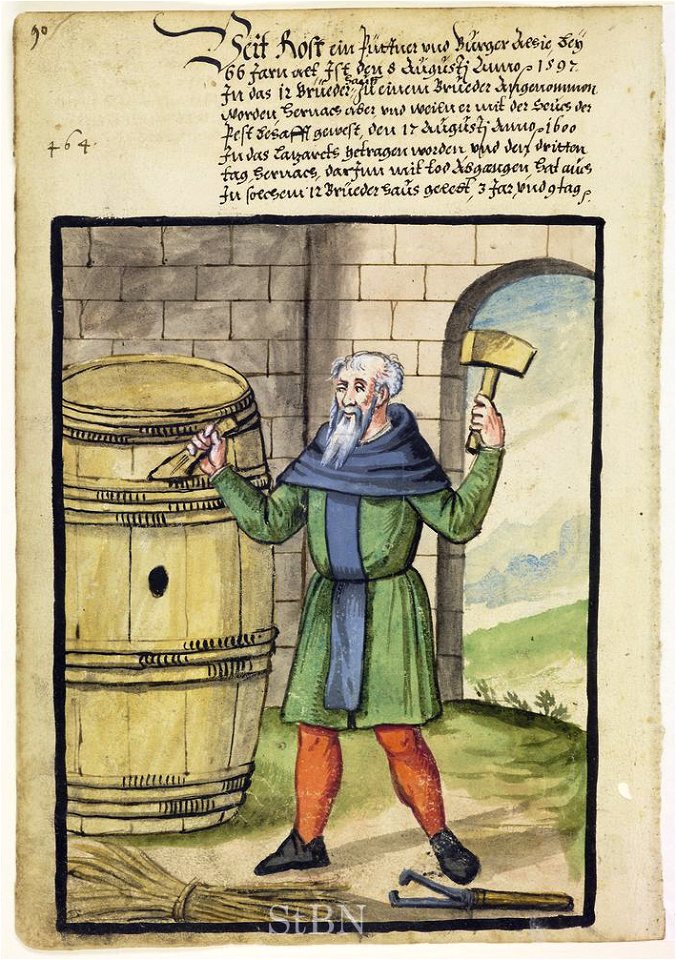 90
Veit Rost ein Püttner und Burger Alhie, bey
66 Jarn alt Ist den 8 Augustj Anno 1597
In das 12 Brüeder haus zu einem Brueder Angenommen
worden, hernach aber und weiln er mit der Seuch der
Pest behafft gewest, den 17 Augustj Anno 1600
464.
In das Lazareth getragen worden und den dritten
tag hernach, darInn mit tod Abgangen, hat auch
In solchem 12 Brüeder haus gelebt, 3 Jar, und 9 tag
StBN